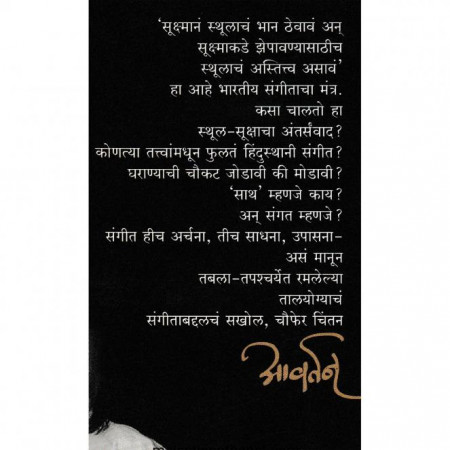 ‘सूक्ष्मानं स्थूलाचं भान ठेवावं अन्
सूक्ष्माकडे झेपावण्यासाठीच
स्थूलाचं अस्तित्त्व असावं’
हा आहे भारतीय संगीताचा मंत्र.
कसा चालतो हा
स्थूल-सूक्ष्माचा अंतर्संवाद?
कोणत्या तत्त्वांमधून फुलतं हिंदुस्थानी संगीत?
घराण्याची चौकट जोडावी की मोडावी?
‘साथ’ म्हणजे काय?
अन् संगत म्हणजे?
संगीत हीच अर्चना, तीच साधना, उपासना-
असं मानून
तबला-तपश्चर्येत रमलेल्या
तालयोग्याचं
संगीताबद्दलचं सखोल, चौफेर चिंतन
आवर्तन